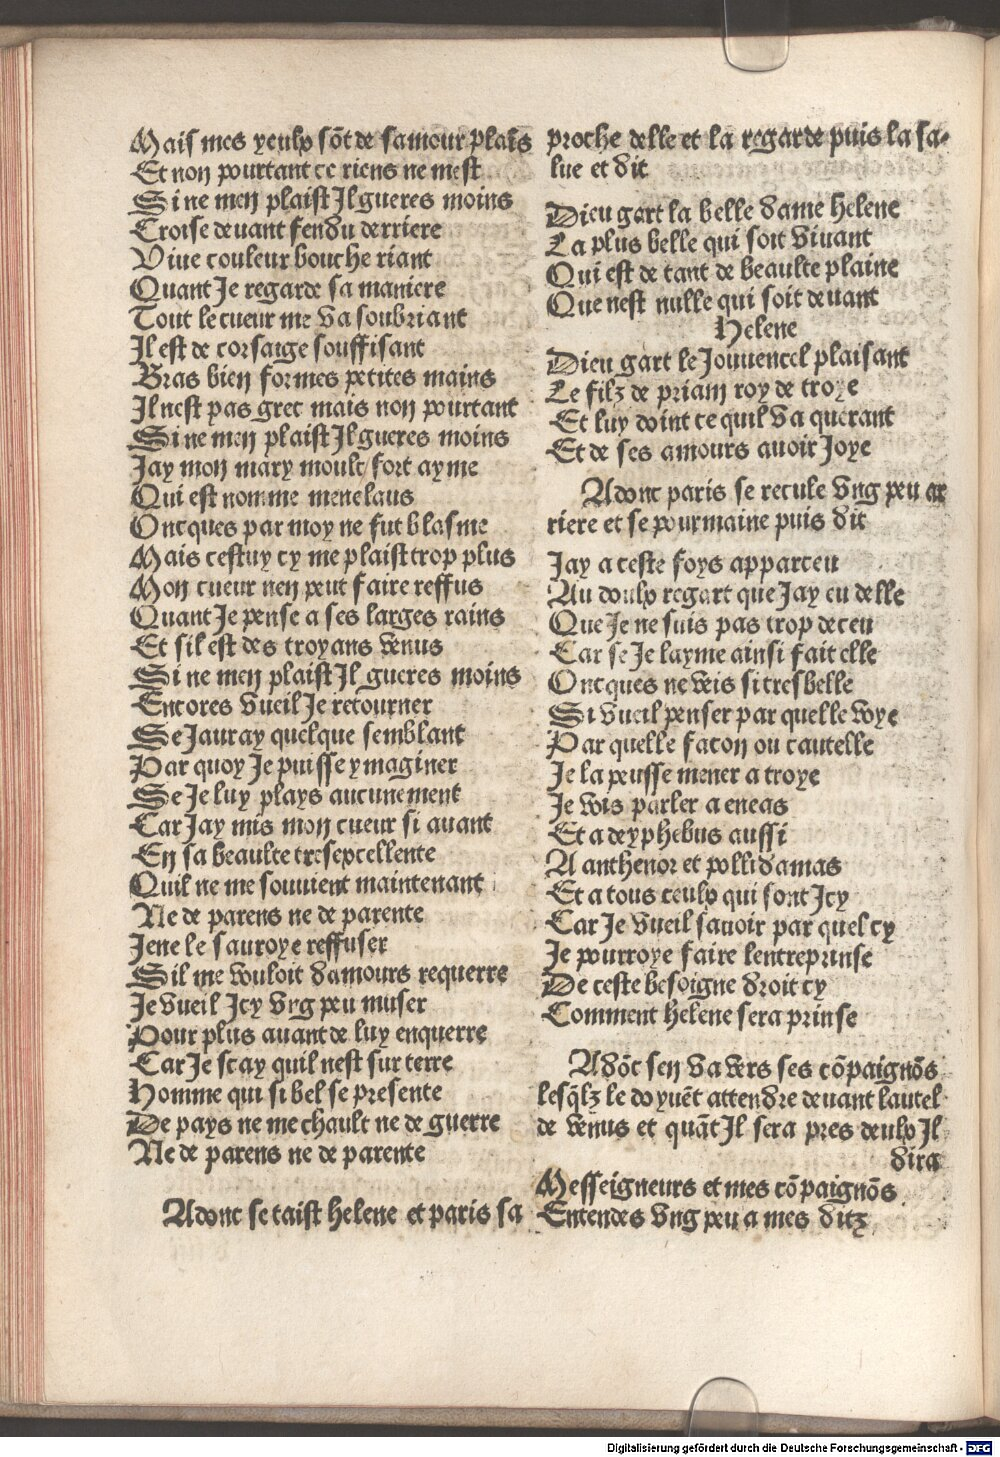 Mais mes yeulx sõt de samour plais
Et non pourtant ce riens ne mest
Si ne men plaist Il gueres moins
Croise deuant fendu derriere
Viue couleur bouche riant
Quant Je regarde sa maniere
Tout le cueur me va soubriant
Il est de corsaige souffisant
Bras bien formes petites mains
Il nest pas grec mais non pourtant
Si ne men plaist Il gueres moins
Jay mon mary moult fort ayme
Qui est nomme menelaus
Oncques par moy ne fut blasme
Mais cestuy cy me plaist trop plus
Mon cueur nen peut faire reffus
Quant Je pense a ses larges rains
Et sil est des troyans venus
Si ne men plaist Il gueres moins
Encores vueil Je retourner
Se Jauray quelque semblant
Par quoy Je puisse ymaginer
Se Je luy plays aucunement
Car Jay mis mon cueur si auant
En sa beaulte tresexcellente
Quil ne me souuient maintenant
Ne de parens ne de parente
Je ne le sauroye reffuser
Sil me vouloit damours requerre
Je vueil Icy vng peu muser
Pour plus auant de luy enquerre
Car Je scay quil nest sur terre
Homme qui si bel se presente
De pays ne me chault ne de guerre
Ne de parens ne de parente
Adonc se taist helene et paris sa
proche delle et la regarde puis la sa-
lue et dit
Dieu gart la belle dame helene
La plus belle qui soit viuant
Qui est de tant de beaulte plaine
Que nest nulle qui soit deuant
Helene
Dieu gart le Jouuencel plaisant
Le filz de priam roy de troye
Et luy doint ce quil va querant
Et de ses amours auoir Joye
Adonc paris se recule vng peu ar
riere et se pourmaine puis dit
Jay a ceste foys apparceu
Au doulx regart que Jay eu delle
Que Je ne suis pas trop deceu
Car se Je layme ainsi fait elle
Oncques ne veis si tresbelle
Si vueil penser par quelle voye
Par quelle facon ou cautelle
Je la peusse mener a troye
Je vois parler a eneas
Et a deyphebus aussi
A anthenor et pollidamas
Et a tous ceulx qui sont Icy
Car Je vueil sauoir par quel cy
Je pourroye faire lentreprinse
De ceste besoigne droit cy
Comment helene sera prinse
Adõc sen va vers ses cõpaignõs
lesq̃lz le doyuẽt attendre deuant lautel
de venus et quãt Il sera pres deulx Il
dira
Messeigneurs et mes cõpaignõs
Entendes vng peu a mes ditz
Digitalisierung gefördert durch die Deutsche Forschungsgemeinschaft - DFG